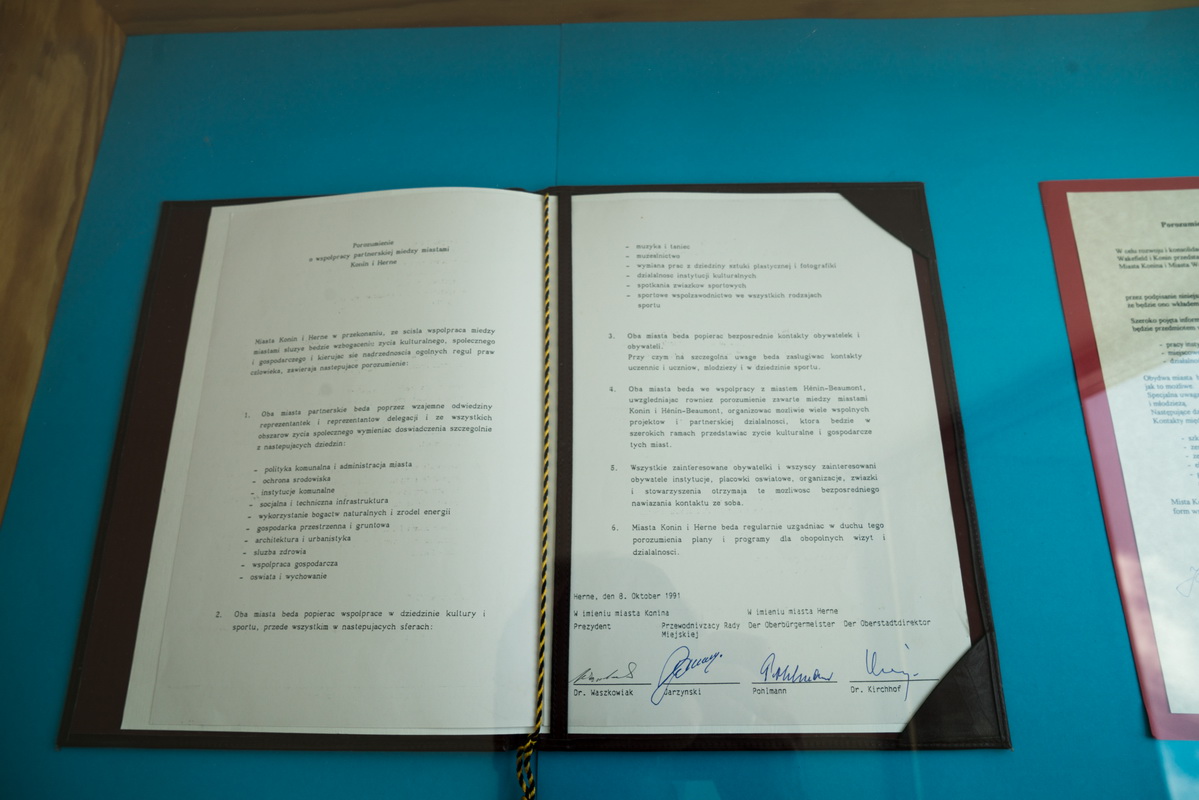 Porozumienie
o wspolpracy partnerskiej miedzy miastami
Konin i Herne
Miasta Konin i Herne w przekonaniu, ze scisla wspolpraca miedzy
miastami sluzyc bedzie wzbogaceniu zycia kulturalnego, spolecznego
i gospodarczego i kierujac sie nadrzednoscia ogolnych regul praw
czlowieka, zawieraja nastepujace porozumienie:
1. Oba miasta partnerskie beda poprzez wzajemne odwiedziny
reprezentantek i reprezentantow delegacji i ze wszystkich
obszarow zycia spolecznego wymieniac doswiadczenia szczegolnie
z nastepujacych dziedzin:
- polityka komunalna i administracja miasta
- ochrona srodowiska
- instytucje komunalne
- socjalna i techniczna infrastruktura
- wykorzystanie bogactw naturalnych i zrodel energii
- gospodarka przestrzenna i gruntowa
- architektura i urbanistyka
- sluzba zdrowia
- wspolpraca gospodarcza
- oswiata i wychowanie
2. Oba miasta beda popierac wspolprace w dziedzinie kultury i
sportu, przede wszystkim w nastepujacych sferach:
- muzyka i taniec
- muzealnictwo
- wymiana prac z dziedziny sztuki plastycznej i fotografiki
- dzialalnosc instytucji kulturalnych
- spotkania zwiazkow sportowych
- sportowe wspolzawodnictwo we wszystkich rodzajach
sportu
3. Oba miasta beda popierac bezposrednie kontakty obywatelek i
obywateli.
Przy czym na szczegolna uwage beda zaslugiwac kontakty
uczennic i uczniow, mlodziezy i w dziedzinie sportu.
4. Oba miasta beda we wspolpracy z miastem Hénin-Beaumont,
uwzgledniajac rowniez porozumienie zawarte miedzy miastami
Konin i Hénin-Beaumont, organizowac mozliwie wiele wspolnych
projektow i partnerskiej dzialalnosci, ktora bedzie w
szerokich ramach przedstawiac zycie kulturalne i gospodarcze
tych miast.
5. Wszystkie zainteresowane obywatelki i wszyscy zainteresowani
obywatele instytucje, placowki oswiatowe, organizacje, zwiazki
i stowarzyszenia otrzymaja te mozliwosc bezposredniego
nawiazania kontaktu ze soba.
6. Miasta Konin i Herne beda regularnie uzgadniac w duchu tego
porozumienia plany i programy dla obopolnych wizyt i
dzialalnosci.
Herne, den 8. Oktober 1991
W imieniu miasta Konina W imieniu miasta Herne
Prezydent Przewodnivzacy Rady Der Oberbürgermeister Der Oberstadtdirektor
Miejskiej
Pohlmann
Dr. Waszkowiak Jarzynski Pohlmann Dr. Kirchhof
W celu rozwoju i
Wakefield i Konin
Miasta Konina i Miasta
przez podpisanie
ze będzie ono wkładem
Szeroko pojęta
będzie przedmiotem
- pracy
Obydwa miasta
jak to możliwe
Specjalna uwaga
i młodzieżą
Następujące
Kontakty
form